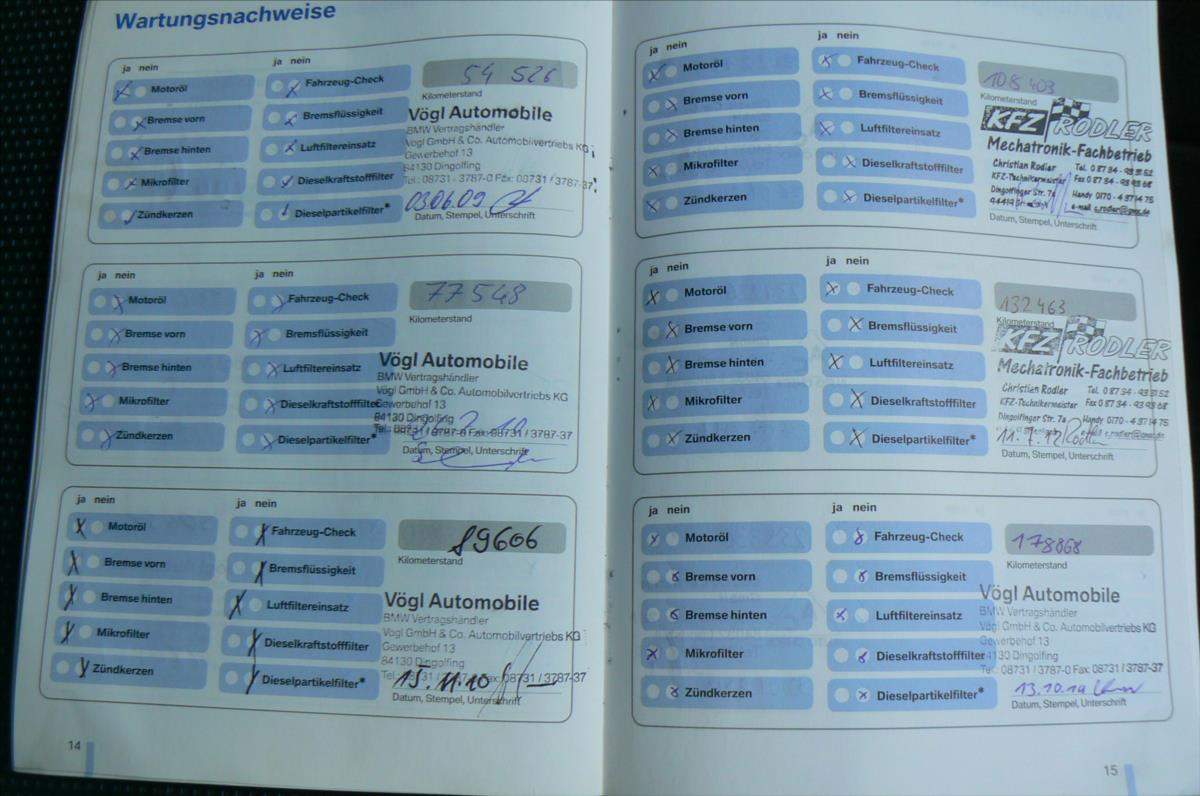 Wartungsnachweise
ja nein
ja nein
Motoröl
Bremse vorn
Bremse hinten
Mikrofilter
Zündkerzen
Fahrzeug-Check
Bremsflüssigkeit
Luftfiltereinsatz
Dieselkraftstofffilter
Dieselpartikelfilter*
54 526
Kilometerstand
Vögl Automobile
BMW Vertragshändler
Vögl GmbH & Co. Automobilvertriebs KG
Gewerbehof 13
84130 Dingolfing
Tel.: 08731 - 3787-0 Fax: 08731 / 3787-37
03.06.09
Datum, Stempel, Unterschrift
ja nein
ja nein
Motoröl
Bremse vorn
Bremse hinten
Mikrofilter
Zündkerzen
Fahrzeug-Check
Bremsflüssigkeit
Luftfiltereinsatz
Dieselkraftstofffilter
Dieselpartikelfilter*
77 548
Kilometerstand
Vögl Automobile
BMW Vertragshändler
Vögl GmbH & Co. Automobilvertriebs KG
Gewerbehof 13
84130 Dingolfing
Tel.: 08731 / 3787-0 Fax: 08731 / 3787-37
Datum, Stempel, Unterschrift
ja nein
ja nein
Motoröl
Bremse vorn
Bremse hinten
Mikrofilter
Zündkerzen
Fahrzeug-Check
Bremsflüssigkeit
Luftfiltereinsatz
Dieselkraftstofffilter
Dieselpartikelfilter*
89606
Kilometerstand
Vögl Automobile
BMW Vertragshändler
Vögl GmbH & Co. Automobilvertriebs KG
Gewerbehof 13
84130 Dingolfing
Tel.: 08731 / 3787-0 Fax: 08731 / 3787-37
15.11.10
Datum, Stempel, Unterschrift
14
ja nein
ja nein
Motoröl
Bremse vorn
Bremse hinten
Mikrofilter
Zündkerzen
Fahrzeug-Check
Bremsflüssigkeit
Luftfiltereinsatz
Dieselkraftstofffilter
Dieselpartikelfilter*
108 403
Kilometerstand
KFZ RODLER
Mechatronik-Fachbetrieb
Christian Rodler Tel. 0 87 34 - 93 31 52
KFZ-Technikermeister Fax 0 87 34 - 93 93 68
Dingolfinger Str. 7a Handy 0170 - 4 37 14 75
e-mail c_rodler@gmx.de
Datum, Stempel, Unterschrift
ja nein
ja nein
Motoröl
Bremse vorn
Bremse hinten
Mikrofilter
Zündkerzen
Fahrzeug-Check
Bremsflüssigkeit
Luftfiltereinsatz
Dieselkraftstofffilter
Dieselpartikelfilter*
132 463
Kilometerstand
KFZ RODLER
Mechatronik-Fachbetrieb
Christian Rodler Tel. 0 87 34 - 93 31 52
KFZ-Technikermeister Fax 0 87 34 - 93 93 68
Dingolfinger Str. 7a Handy 0170 - 4 37 14 75
11.7.12 Rodler
Datum, Stempel, Unterschrift
ja nein
ja nein
Motoröl
Bremse vorn
Bremse hinten
Mikrofilter
Zündkerzen
Fahrzeug-Check
Bremsflüssigkeit
Luftfiltereinsatz
Dieselkraftstofffilter
Dieselpartikelfilter*
178868
Kilometerstand
Vögl Automobile
BMW Vertragshändler
Vögl GmbH & Co. Automobilvertriebs KG
Gewerbehof 13
84130 Dingolfing
Tel.: 08731 / 3787-0 Fax: 08731 / 3787-37
13.10.14
Datum, Stempel, Unterschrift
15